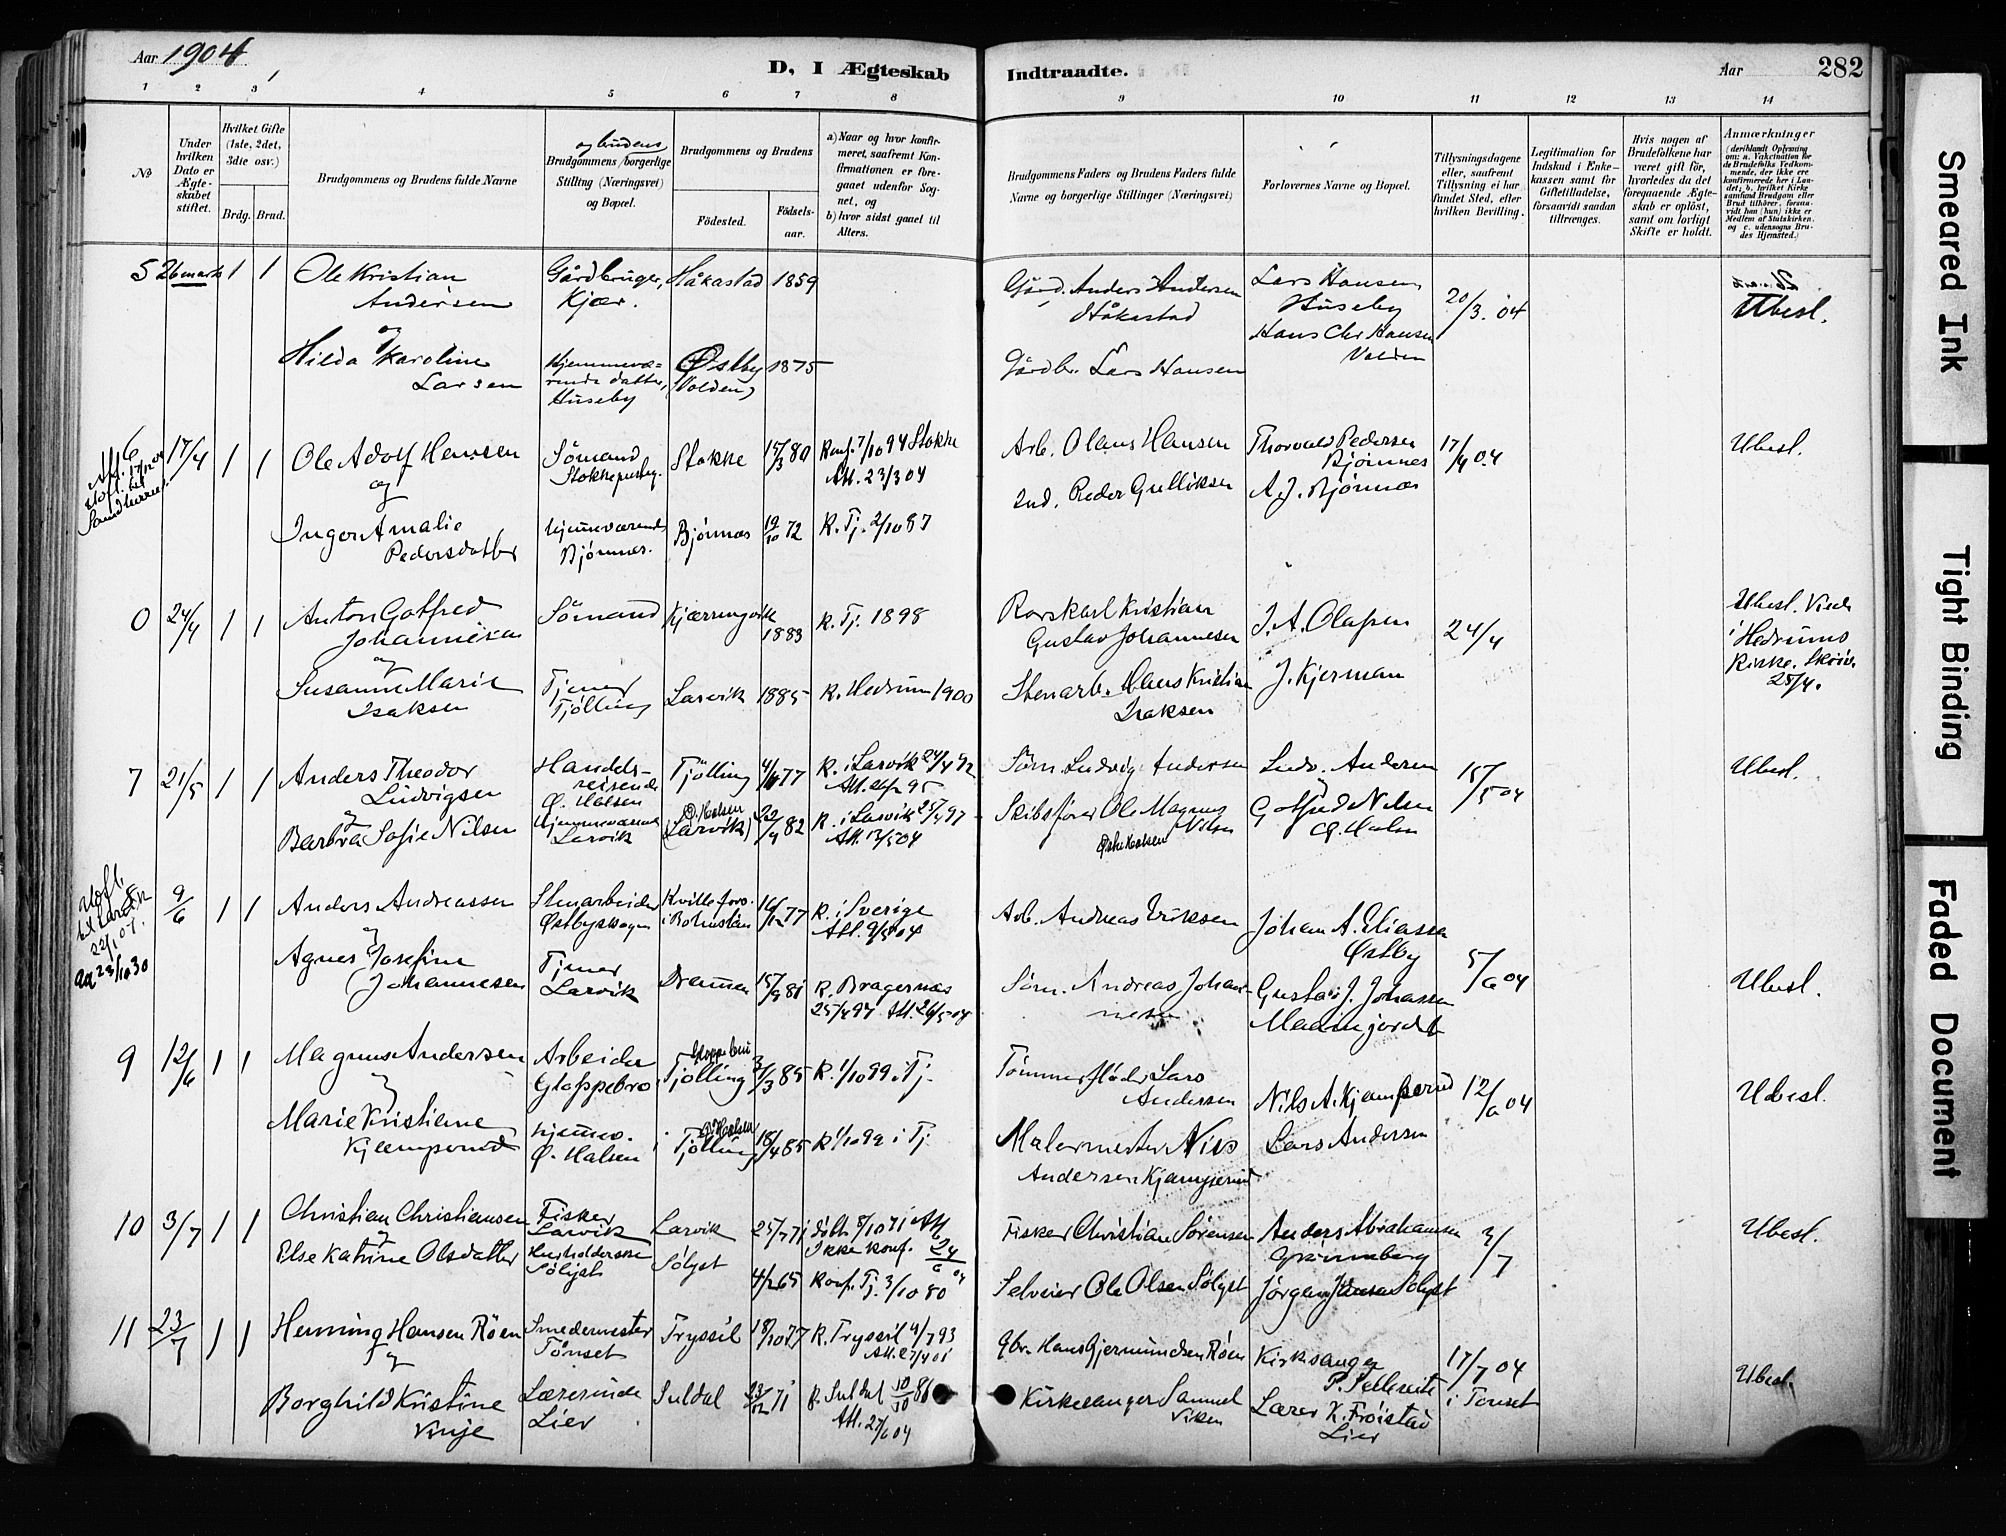 Aar 1904
D, I Ægteskab
Indtraadte.
Aar
282
1 2 3 4 5 6 7 8 9 10 11 12 13 14
No
Under hvilken Dato er Ægteskabet stiftet.
Hvilket Gifte (1ste, 2det, 3die osv.)
Brdg. Brud.
Brudgommens og Brudens fulde Navne
og brudens
Brudgommens borgerlige Stilling (Næringsvei) og Bopæl.
Brudgommens og Brudens
Födested.
Födselsaar.
a) Naar og hvor konfirmeret, saafremt Konfirmationen er foregaaet udenfor Sognet, og
b) hvor sidst gaaet til Alters.
Brudgommens Faders og Brudens Faders fulde Navne og borgerlige Stillinger (Næringsvei)
Forlovernes Navne og Bopæl.
Tillysningsdagene eller, saafremt Tillysning ei har fundet Sted, efter hvilken Bevilling.
Legitimation for Indskud i Enkekassen samt for Giftetilladelse, forsaavidt saadan tiltrænges.
Hvis nogen af Brudefolkene har været gift för, hvorledes da det foregaaende Ægteskab er oplöst, samt om lovligt Skifte er holdt.
Anmærkninger
(deriblandt Oplysning om: a. Vakcination for de Brudefolks Vedkommende, der ikke ere konfirmerede her i Landet; b. hvilket Kirkesamfund Brudgom eller Brud tilhörer, forsaavidt han (hun) ikke er Medlem af Statskirken, og c. udensogns Brudes Hjemsted.)
5 26 marts 1 1 Ole Kristian Andersen
Gårdbruger, Kjær. Håkastad 1859
Gårdb. Anders Andersen Håkastad
Lars Hansen Huseby
20/3. 04
Ubesl.
og
Hilda Karoline Larsen
Hjemmeværende datter, Huseby
Østby (Volden) 1875
Gårdbr. Lars Hansen
Hans Chr Hansen Volden
6 17/4 1 1 Ole Adolf Hansen
Sömand
Stokke 15/3 80
Konf. 7/10 94 Stokke
Alt. 23/3 04
Arb. Olaus Hansen
Thorvald Pedersen Bjönnes
17/4 04
Ubesl.
og
Inger Amalie Pedersdatter
Hjemmeværende Bjönnes.
Bjönnes 19/10 72
K. Tj. 2/10 87
Ind. Peder Gulliksen
A. J. Bjönnes
0 24/4 1 1 Anton Gotfred Johannesen
Sömand Kjærringvik 1883
K. Tj. 1898
Rorskarl Kristian Gustav Johannesen
J. A. Olafsen
24/4
Ubesl. Viede i Hedrums Kirke.
25/4.
og
Susanne Marie Isaksen
Tjener Tjölling
Larvik 1885
K. Hedrum 1900
Stenarb. Hans Kristian Isaksen
J. Kjerman
7 21/5 1 1 Anders Theodor Ludvigsen
Handelsreisende Ø. Halsen
Tjölling 4/11 77
K. i Larvik 24/4 92
Sörn. Ludvig Andersen
Ludv. Andersen
15/5 04
Ubesl.
og
Barbra Sofie Nilsen
Hjemmeværende Larvik
Ø. Halsen (Larvik) 22/9 82
K. i Larvik 25/4 97
Alt. 13/5 04
Skibsförer Ole Magnus Nilsen
Østre Halsen
Gotfred Nilsen
Ø. Halsen
9/6 1 1 Anders Andreassen
Stenarbeider Østbyskogen
16/12 77
K. i Sverige
Alt. 9/5 04
Arb. Andreas Eriksen
Johan A. Eliassen Østby
5/6 04
Ubesl.
og
Agnes Josefine Johannesen
Tjener Larvik
Drammen 15/9 81
K. Bragernæs
25/4 97 Alt. 24/5 04
Sörn. Andreas Johannesen
Gustav J. Johansen
9 12/6 1 1 Magnus Andersen
Arbeider Gloppebro
Tjölling 3/3 85
K. 1/10 99 i Tj.
Tömmerfløder Lars Andersen
Nils A. Kjæmperud
12/6 04
Ubesl.
og
Marie Kristiane Kjæmperud
hjemmev. Ø. Halsen
Ø. Halsen i Tjölling 18/4 85
K 1/10 99 i Tj.
Malermester Nils Andersen Kjæmperud
Lars Andersen
10 3/7 1 1 Christian Christiansen
Fisker Larvik
Larvik 25/7 71
döbt 8/10 71 Alt
Ikke konf. 24/6 04
Fisker Christian Sörensen
Anders Abrahamsen
3/7
Ubesl.
og
Else Katrine Olsdatter
Husholderske Sölyst
Sölyst 4/12 65
Konf. Tj. 3/10 80
Selveier Ole Olsen Sölyst
Jörgen Jansen Sölyst
11 23/7 1 1 Henning Hansen Röen
Smedemester Tönset
Tryssil 18/10 77
K. Tryssil 9/7 93
Alt. 27/4 01
Gbr. Hans Gjermundsen Röen
Kirkesanger P. Selleseite
17/7 04 i Tönset
Ubesl.
og
Borghild Kristine Vinje
Lærerinde Lier
Suldal 23/12 71
K. Suldal 10/10 86
Alt. 27/6 04
Kirkesanger Samuel Viken
Lærer K. Fröistad Lier
Smeared Ink
Tight Binding
Faded Document